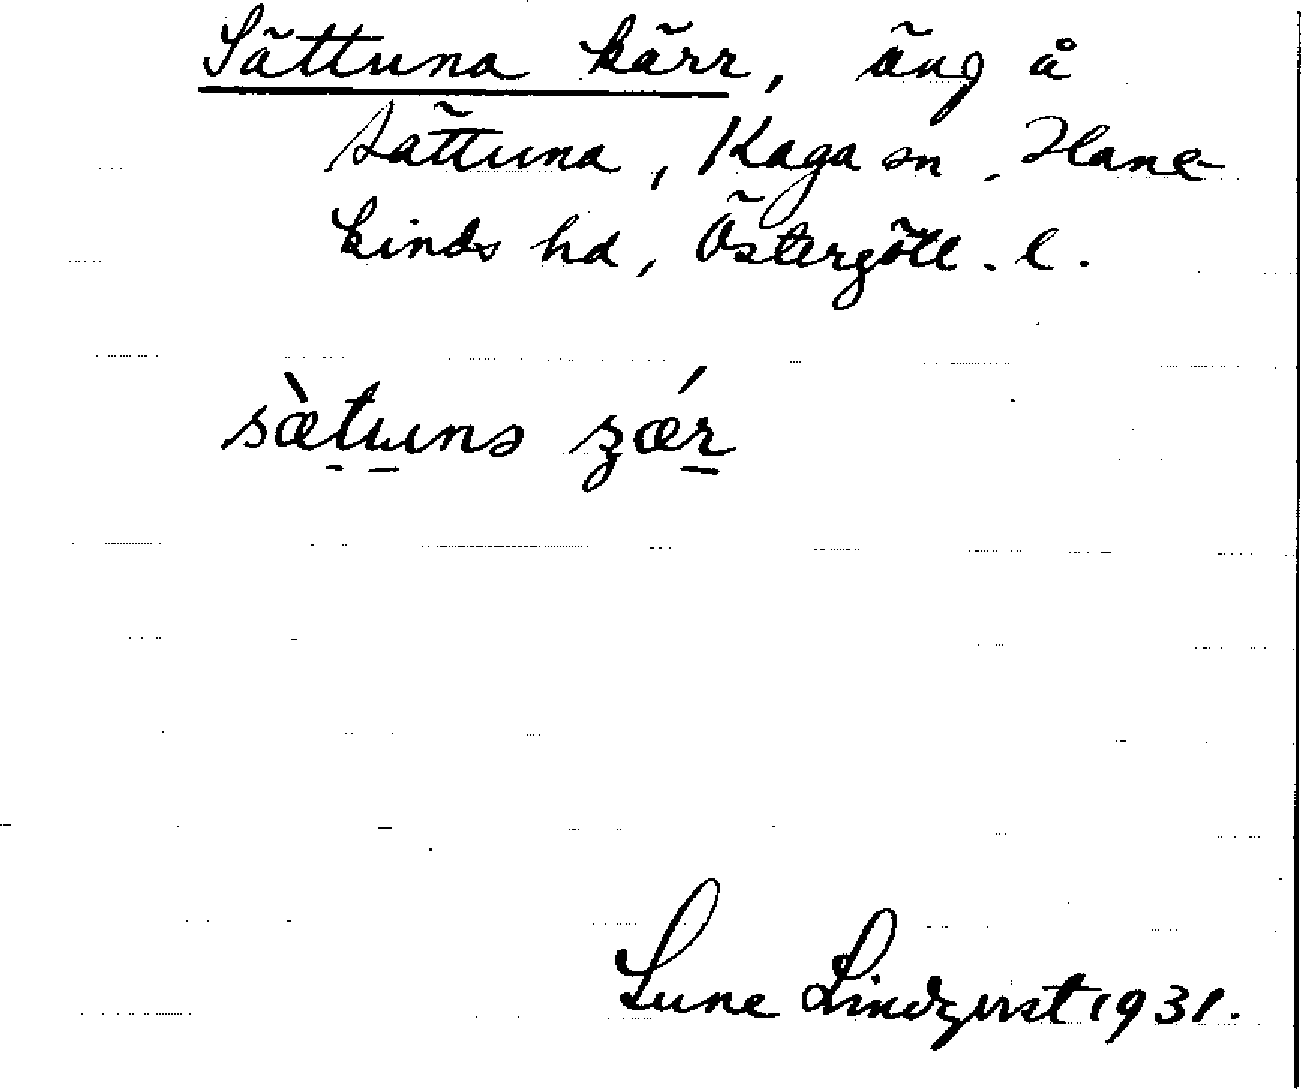 Sättuna kärr, äng å
Sättuna, Kaga sn, Hane-
kinds hd, Östergötl. l.
sæ̀tuna ʒǽr
Sune Lindqvist 1931.